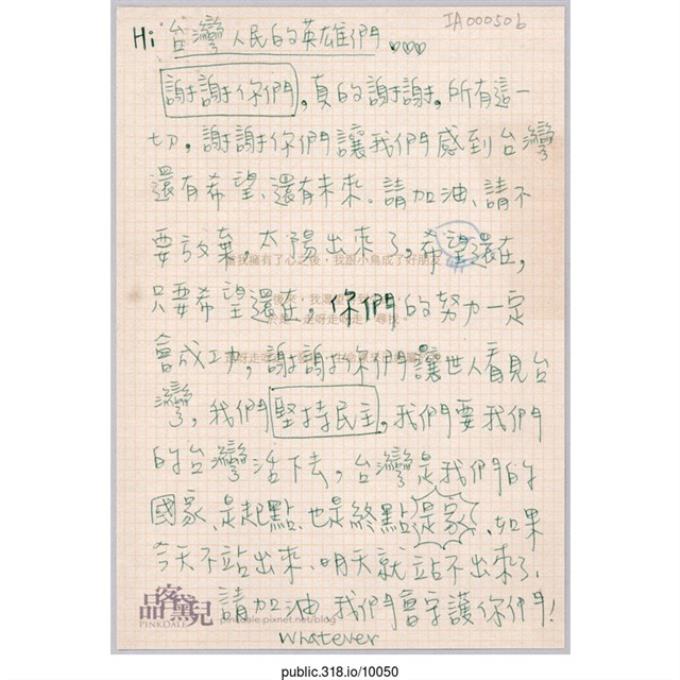 IA000506
Hi 台灣人民的英雄們 ♡♡♡
謝謝你們，真的謝謝，所有這一
切，謝謝你們讓我們感到台灣
還有希望、還有未來。請加油、請不
要放棄。太陽出來了，希望還在，
我擁有了心之後，我跟小鳥成了好朋友
只要希望還在，你們的努力一定
會成功，謝謝你們讓世人看見台
灣，我們堅持民主，我們要我們
的台灣活下去，台灣是我們的
國家、是起點、也是終點是家、如果
今天不站出來、明天就站不出來了、
請加油、我們會守護你們！
品客黛兒
PINKDALE
pinkdale.pixnet.net/blog
Whatever
public.318.io/10050